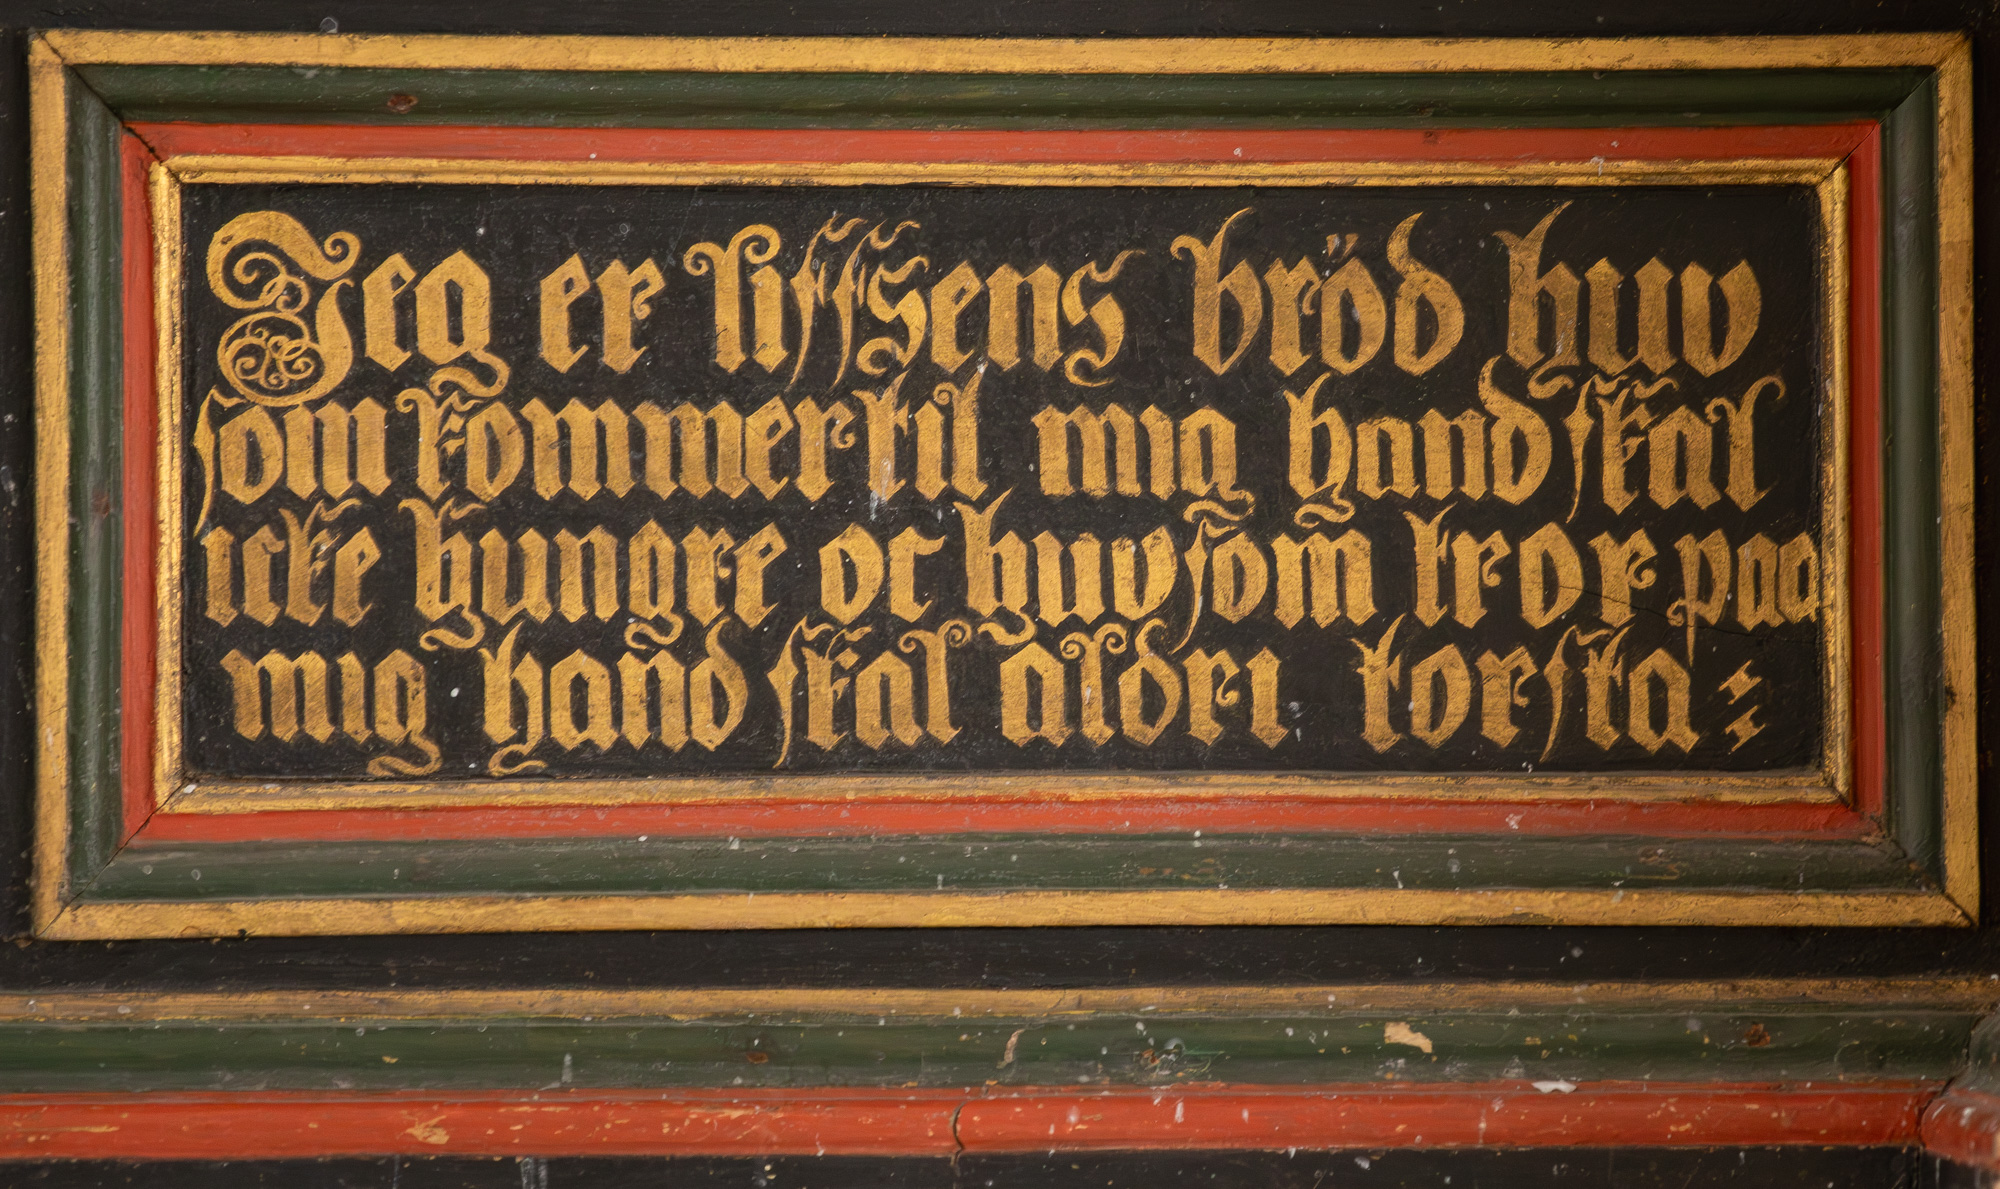 Jeg er liffsens bröd huv
som kommer til mig hand skal
icke hungre oc huv som tror paa
mig hand skal aldri torsta